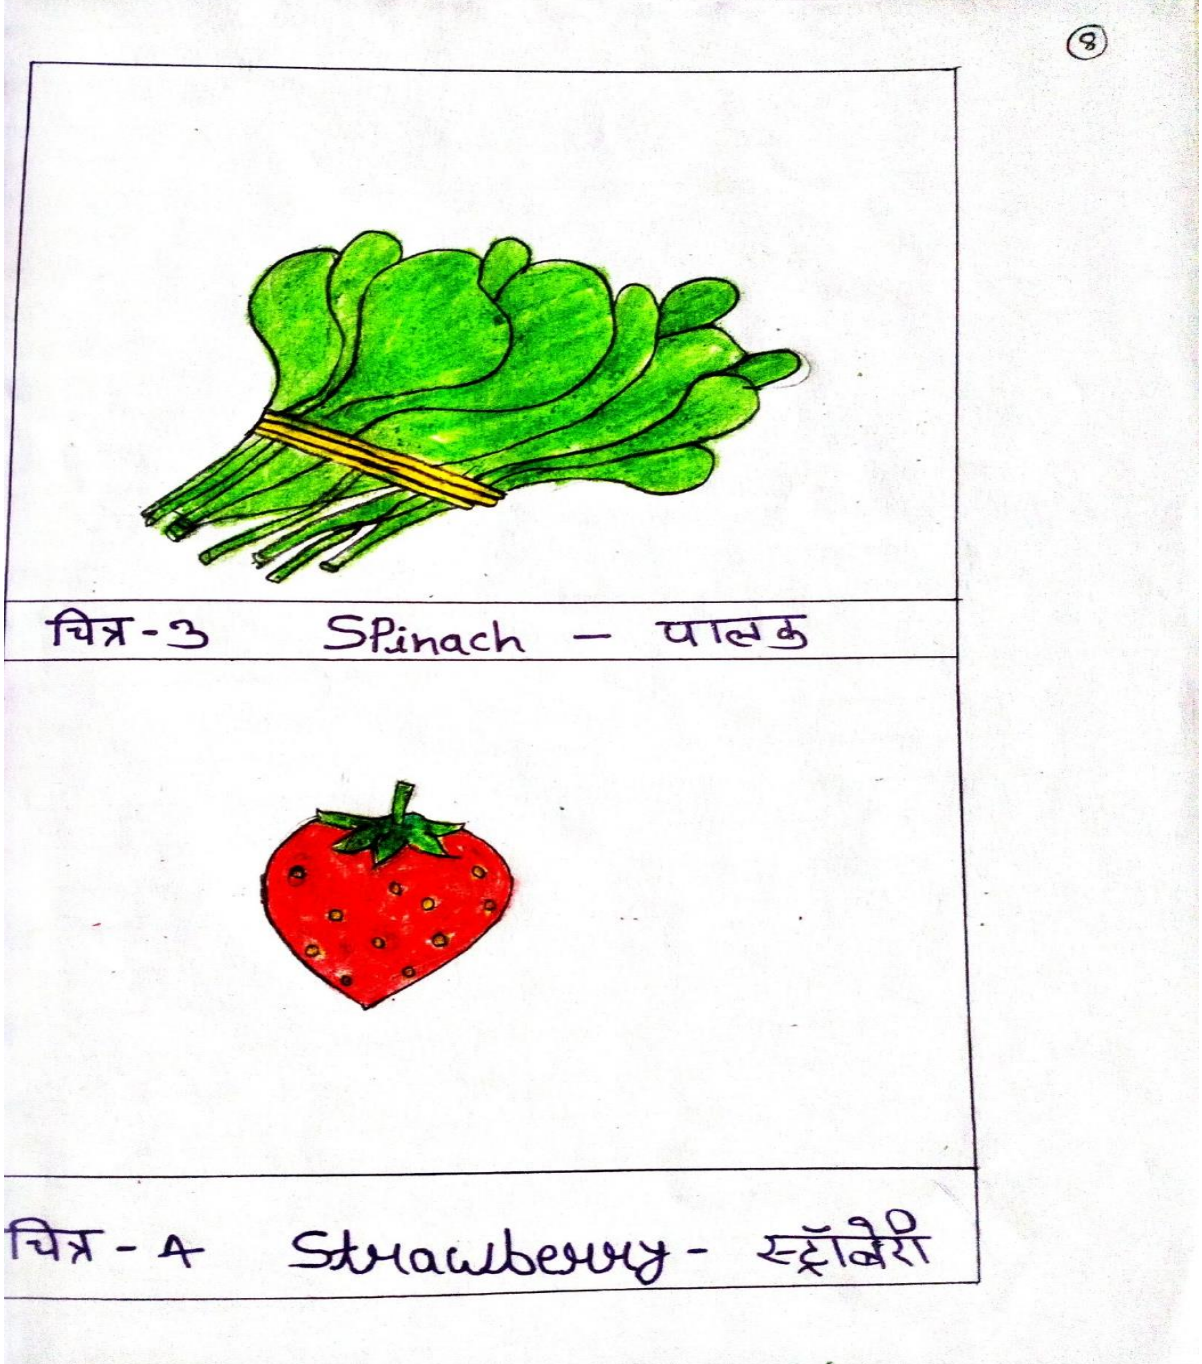 8
चित्र-3 Spinach - पालक
चित्र-4 Strawberry - स्ट्रॉबेरी